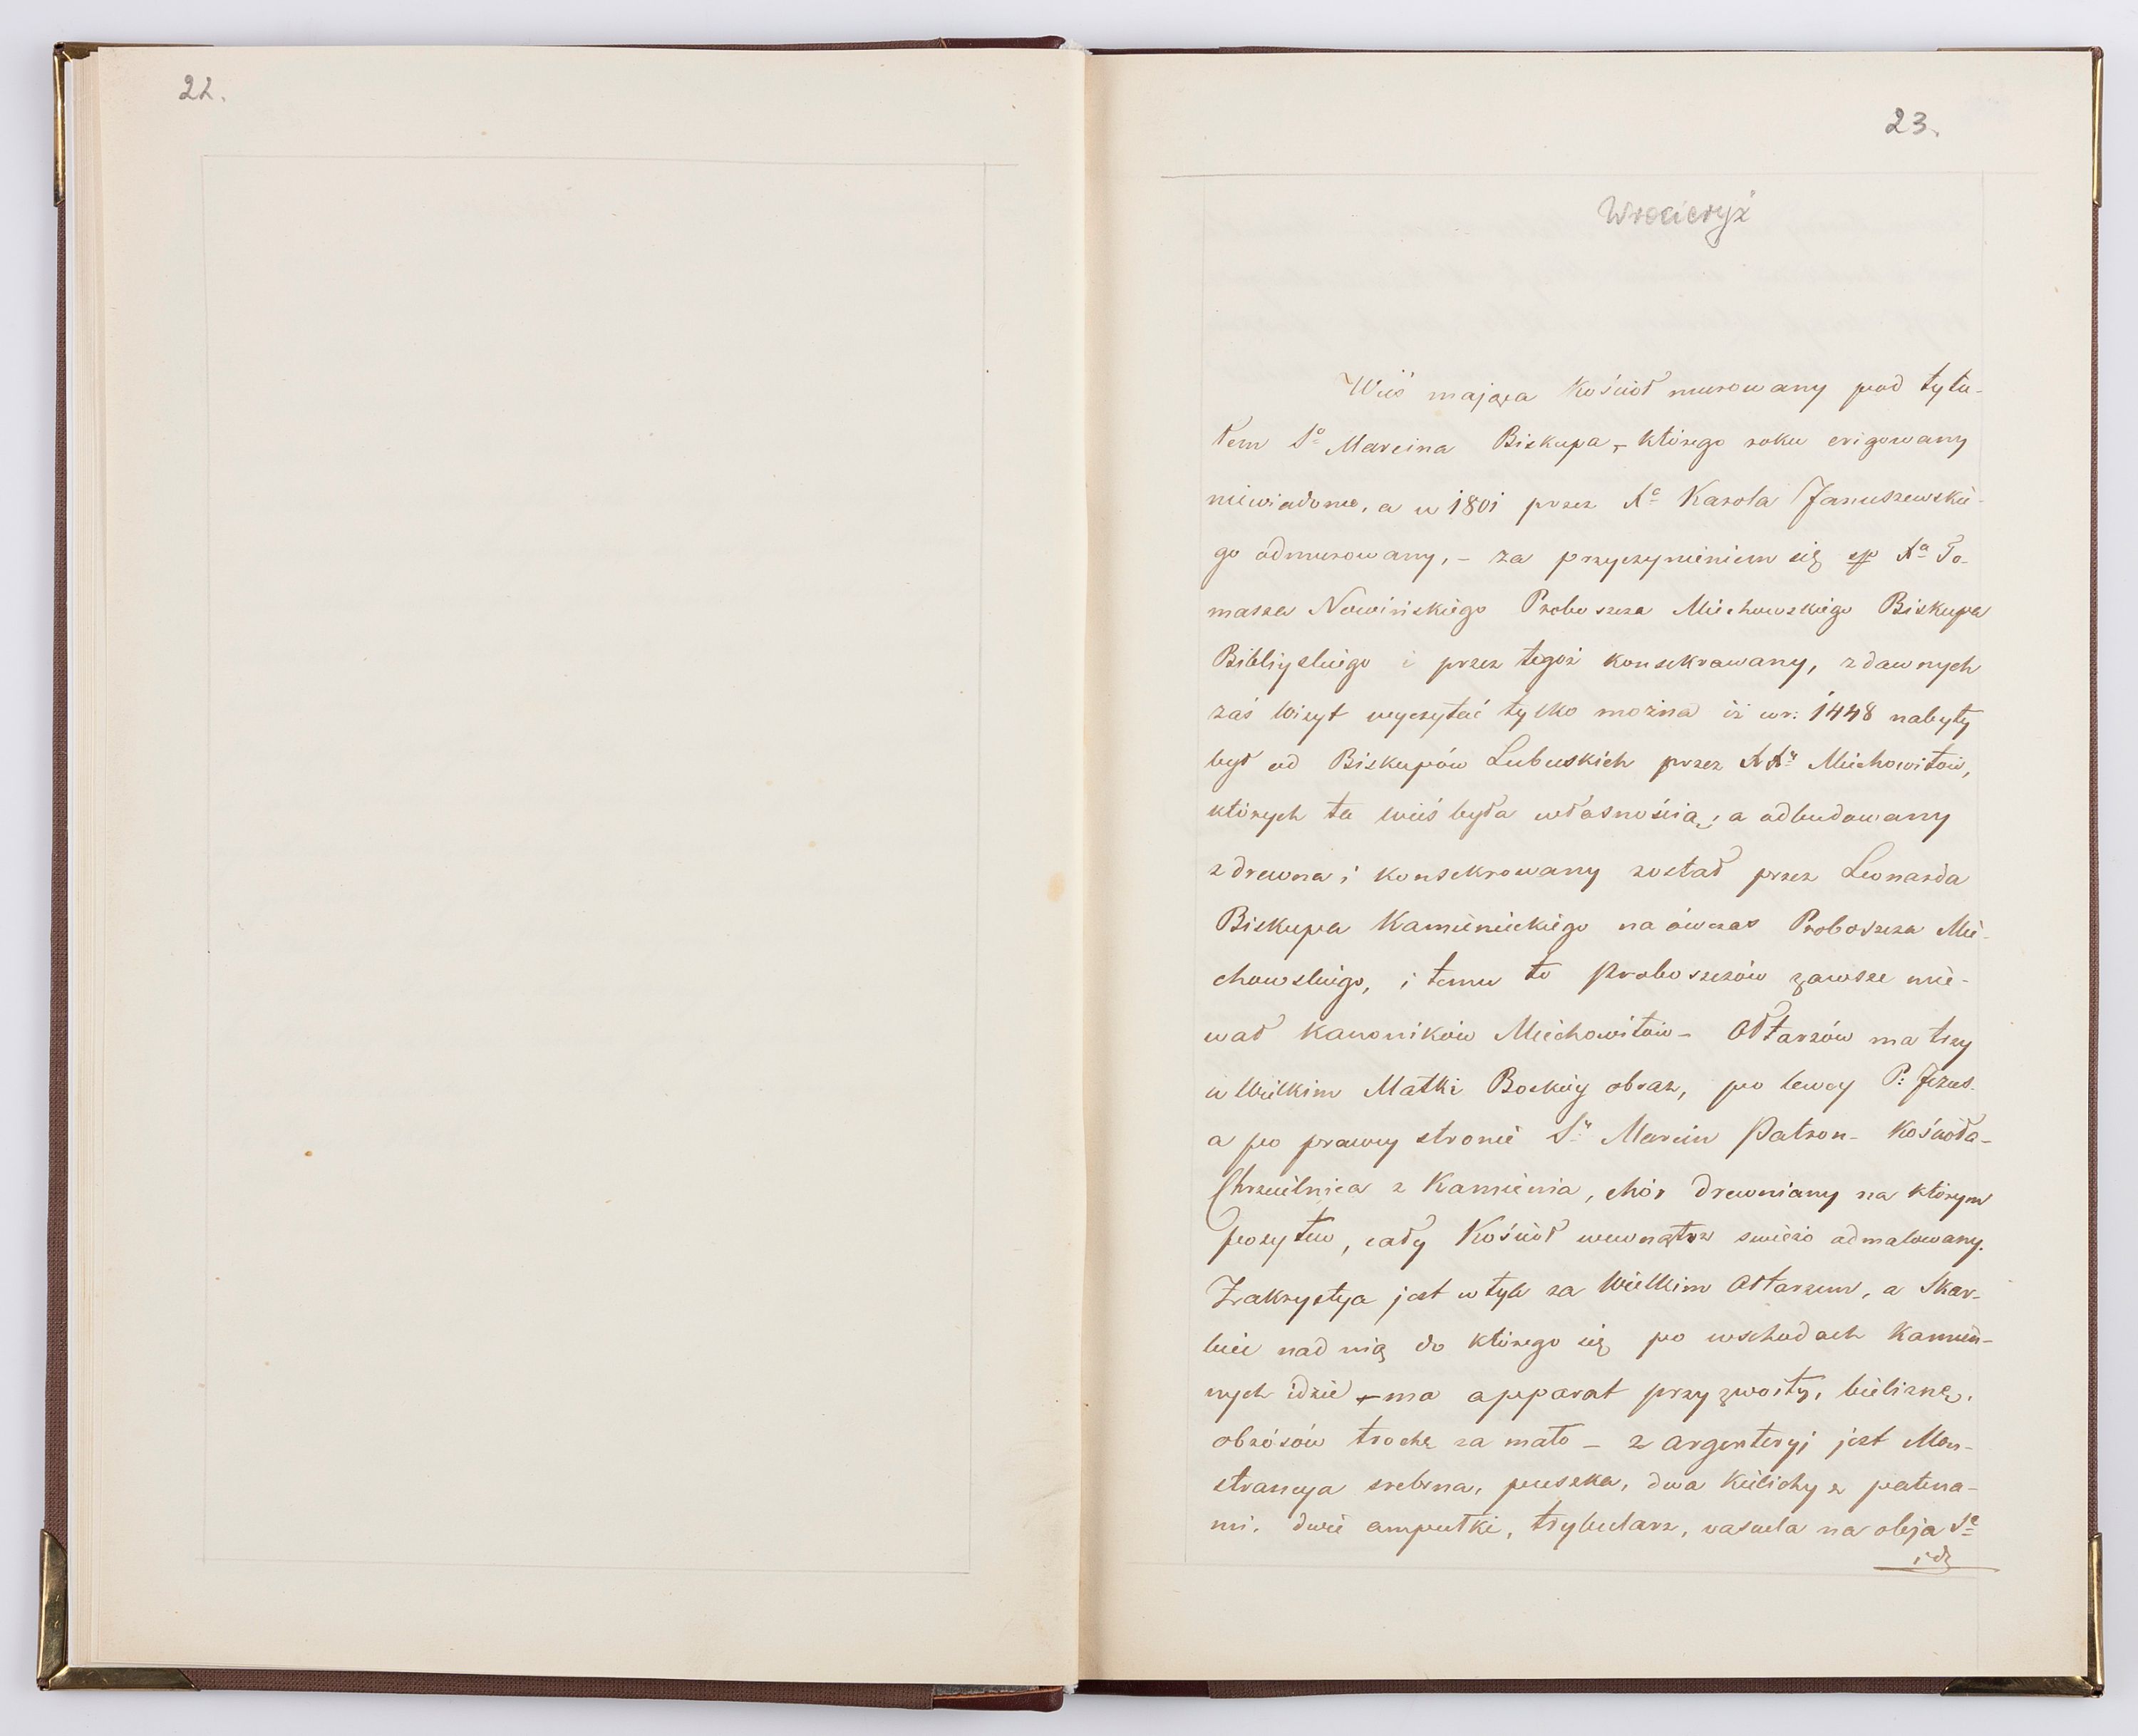 22.
23.
Wrocieryż
Wieś mająca Kościoł murowany pod tytu-
łem Sº Marcina Biskupa, – którego roku erigowany
niewiadomo, a w 1801 przez Xª Karola Januszewskie-
go odmurowany, – za przyczynieniem się śp Xª To-
masza Nowińskiego Proboszcza Miechowskiego Biskupa
Bibliyskiego i przez tegoż konsekrowany, z dawnych
zaś wizyt wyczytać tylko można iż w r: 1448 nabyty
był od Biskupów Lubuskich przez XXʷ Miechowitów,
których ta wieś była własnością; a odbudowany
z drewna i konsekrowany został przez Leonarda
Biskupa Kamienieckiego na ówczas Proboszcza Mie-
chowskiego, i temu to Proboszczów zawsze mie-
wał Kanoników Miechowitów – Ołtarzów ma trzy
w Wielkim Matki Boskiey obraz, po lewey P: Jezus –
a po prawey stronie Sʸ Marcin Patron – Kościoła –
Chrzcielnica z Kamienia, chór drewniany na którym
pozytew, cały Kościół wewnątrz świeżo odmalowany.
Zakrystya jest w tyle za Wielkim Ołtarzem, a Skar-
biec nad nią do którego się po wschodach Kamien-
nych idzie – ma apparat przyzwoity, bieliznę,
obrósów trochę za mało – z argenteryi jest Mon-
strancya srebrna, puszka, dwa Kielichy z patena-
mi, dwie ampułki, trybularz, vascula na oleja Sᵉ
idz